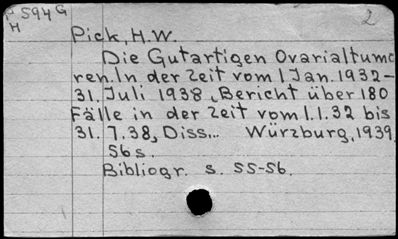 P 594 G
H
2
Pick, H.W.
Die Gutartigen Ovarialtumo
ren. In der Zeit vom 1 Jan. 1932-
31. Juli 1938, Bericht über 180
Fälle in der Zeit vom 1.1.32 bis
31. 7.38, Diss... Würzburg, 1939.
56 s.
Bibliogr. s. 55-56.